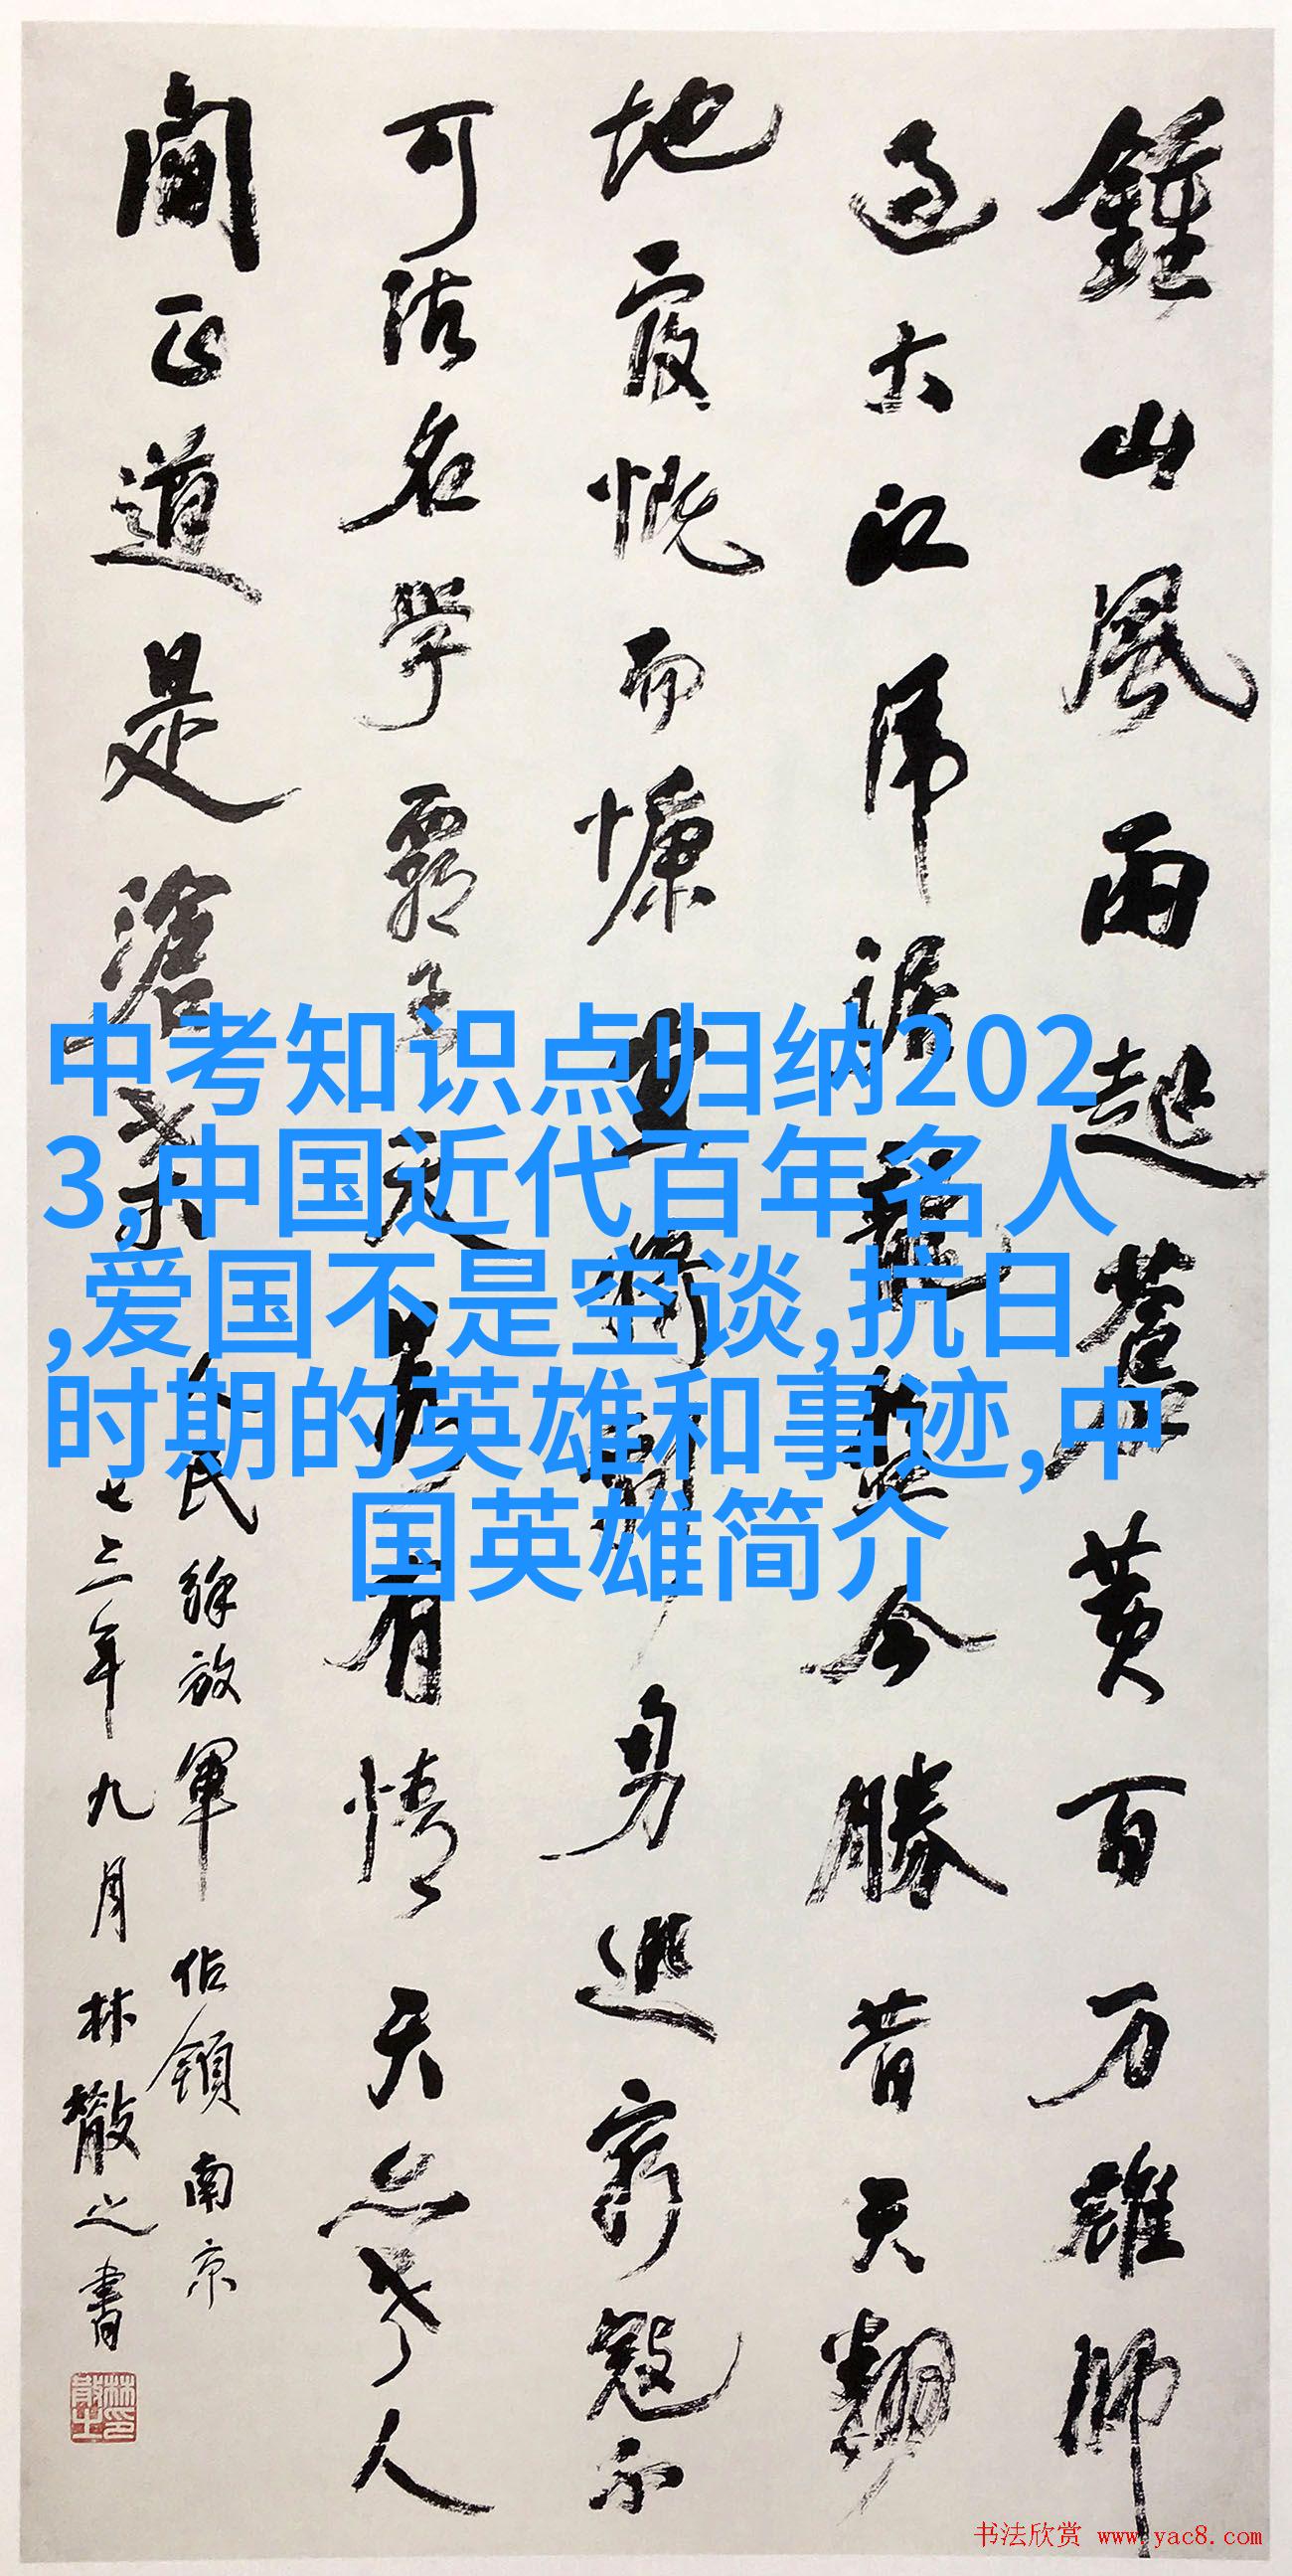 鍾山風雨起蒼黄百万雄師
过大江虎踞龍盤今勝昔天翻
地覆慨而慷宜將剩勇追窮寇不
可沽名學霸王天若有情天亦老人
间正道是滄桑
人民解放軍佔領南京
七三年九月林散之書
中考知识点归纳202
3,中国近代百年名人
,爱国不是空谈,抗日
时期的英雄和事迹,中
国英雄简介
书法欣赏 www.yac8.com